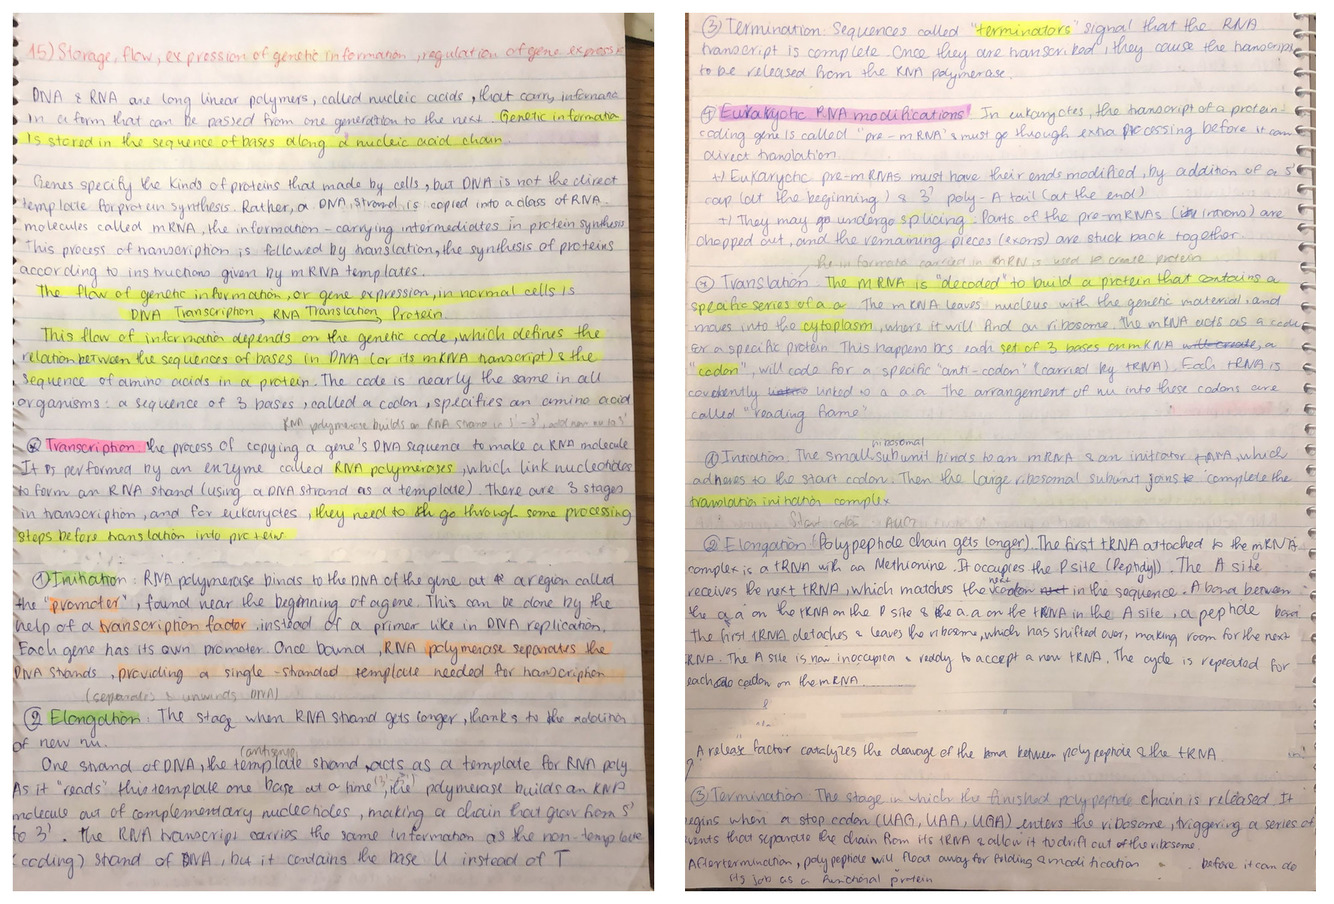 15) Storage, flow, expression of genetic information, regulation of gene express
DNA & RNA are long linear polymers, called nucleic acids, that carry informatio
in a form that can be passed from one generation to the next. Genetic informatio
is stored in the sequence of bases along a nucleic acid chain.
Genes specify the kinds of proteins that made by cells, but DNA is not the direct
template for protein synthesis. Rather, a DNA strand is copied into a class of RNA
molecules called mRNA, the information-carrying intermediates in protein synthesis
This process of transcription is followed by translation, the synthesis of proteins
according to instructions given by mRNA templates.
The flow of genetic information, or gene expression, in normal cells is
DNA Transcription RNA Translation Protein
This flow of information depends on the genetic code, which defines the
relation between the sequences of bases in DNA (or its mRNA transcript) & the
sequence of amino acids in a protein. The code is nearly the same in all
organisms: a sequence of 3 bases, called a codon, specifies an amino acid
RNA polymerase builds an RNA strand in 5'-3',
Transcription the process of copying a gene's DNA sequence to make a RNA molecule
It is performed by an enzyme called RNA polymerases, which link nucleotides
to form an RNA stand (using a DNA strand as a template). There are 3 stages
in transcription, and for eukaryotes, they need to go through some processing
steps before translation into proteins.
① Initiation: RNA polymerase binds to the DNA of the gene at a region called
the "promoter", found near the beginning of a gene. This can be done by the
help of a transcription factor instead of a primer like in DNA replication.
Each gene has its own promoter. Once bound, RNA polymerase separates the
DNA strands, providing a single-stranded template needed for transcription
(separates & unwinds DNA)
② Elongation: The stage when RNA strand gets longer, thanks to the addition
of new nu.
(antisense)
One strand of DNA, the template strand, acts as a template for RNA poly
As it "reads" this template one base at a time (3'→5'), the polymerase builds an RNA
molecule out of complementary nucleotides, making a chain that grow from 5'
to 3'. The RNA transcript carries the same information as the non-template
(coding) strand of DNA, but it contains the base U instead of T
③ Termination. Sequences called "terminators" signal that the RNA
transcript is complete. Once they are transcribed, they cause the transcript
to be released from the RNA polymerase.
④ Eukaryotic RNA modifications: In eukaryotes, the transcript of a protein-
coding gene is called "pre-mRNA" & must go through extra processing before it can
direct translation.
+) Eukaryotic pre-mRNAs must have their ends modified, by addition of a 5'
cap (at the beginning) & 3' poly-A tail (at the end)
+) They may go undergo splicing. Parts of the pre-mRNAs (introns) are
chopped out, and the remaining pieces (exons) are stuck back together.
information carried in mRNA is used to create protein
Translation: The mRNA is "decoded" to build a protein that contains a
specific series of a a. The mRNA leaves nucleus with the genetic material, and
moves into the cytoplasm, where it will find an ribosome. The mRNA acts as a code
for a specific protein. This happens bcs each set of 3 bases on mRNA will create, a
"codon", will code for a specific "anti-codon" (carried by tRNA). Each tRNA is
linked to a a a. The arrangement of nu into these codons are
called "reading frame"
ribosomal
① Initiation: The small subunit binds to an mRNA & an initiator tRNA, which
adheres to the start codon. Then the large ribosomal subunit joins to complete the
translation initiation complex
Start codon AUG
② Elongation (Polypeptide chain gets longer). The first tRNA attached to the mRNA
complex is a tRNA with aa Methionine. It occupies the P site (Peptidyl). The A site
next
receives the next tRNA, which matches the codon next in the sequence. A bond between
the a.a on the tRNA on the P site & the a.a on the tRNA in the A site, a peptide bon
the first tRNA detaches & leaves the ribosome, which has shifted over, making room for the next
RNA. The A site is now inoccupied & ready to accept a new tRNA. The cycle is repeated for
each codon on the mRNA.
A release factor catalyzes the cleavage of the bond between polypeptide & the tRNA
③ Termination. The stage in which the finished polypeptide chain is released. It
egins when a stop codon (UAG, UAA, UGA) enters the ribosome, triggering a series of
vents that separate the chain from its tRNA & allow it to drift out of the ribosome.
After termination, polypeptide will float away for folding & modification before it can do
its job as a functional protein